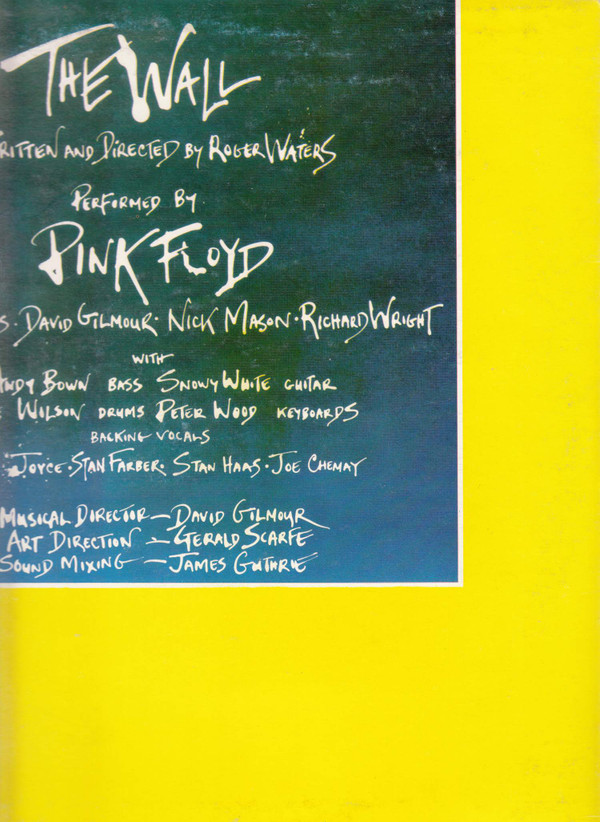 THE WALL
RITTEN AND DIRECTED BY ROGER WATERS
PERFORMED BY
PINK FLOYD
S · DAVID GILMOUR · NICK MASON · RICHARD WRIGHT
WITH
ANDY BOWN BASS SNOWY WHITE GUITAR
E WILSON DRUMS PETER WOOD KEYBOARDS
BACKING VOCALS
JOYCE · STAN FARBER · STAN HAAS · JOE CHEMAY
MUSICAL DIRECTOR — DAVID GILMOUR
ART DIRECTION — GERALD SCARFE
SOUND MIXING — JAMES GUTHRIE